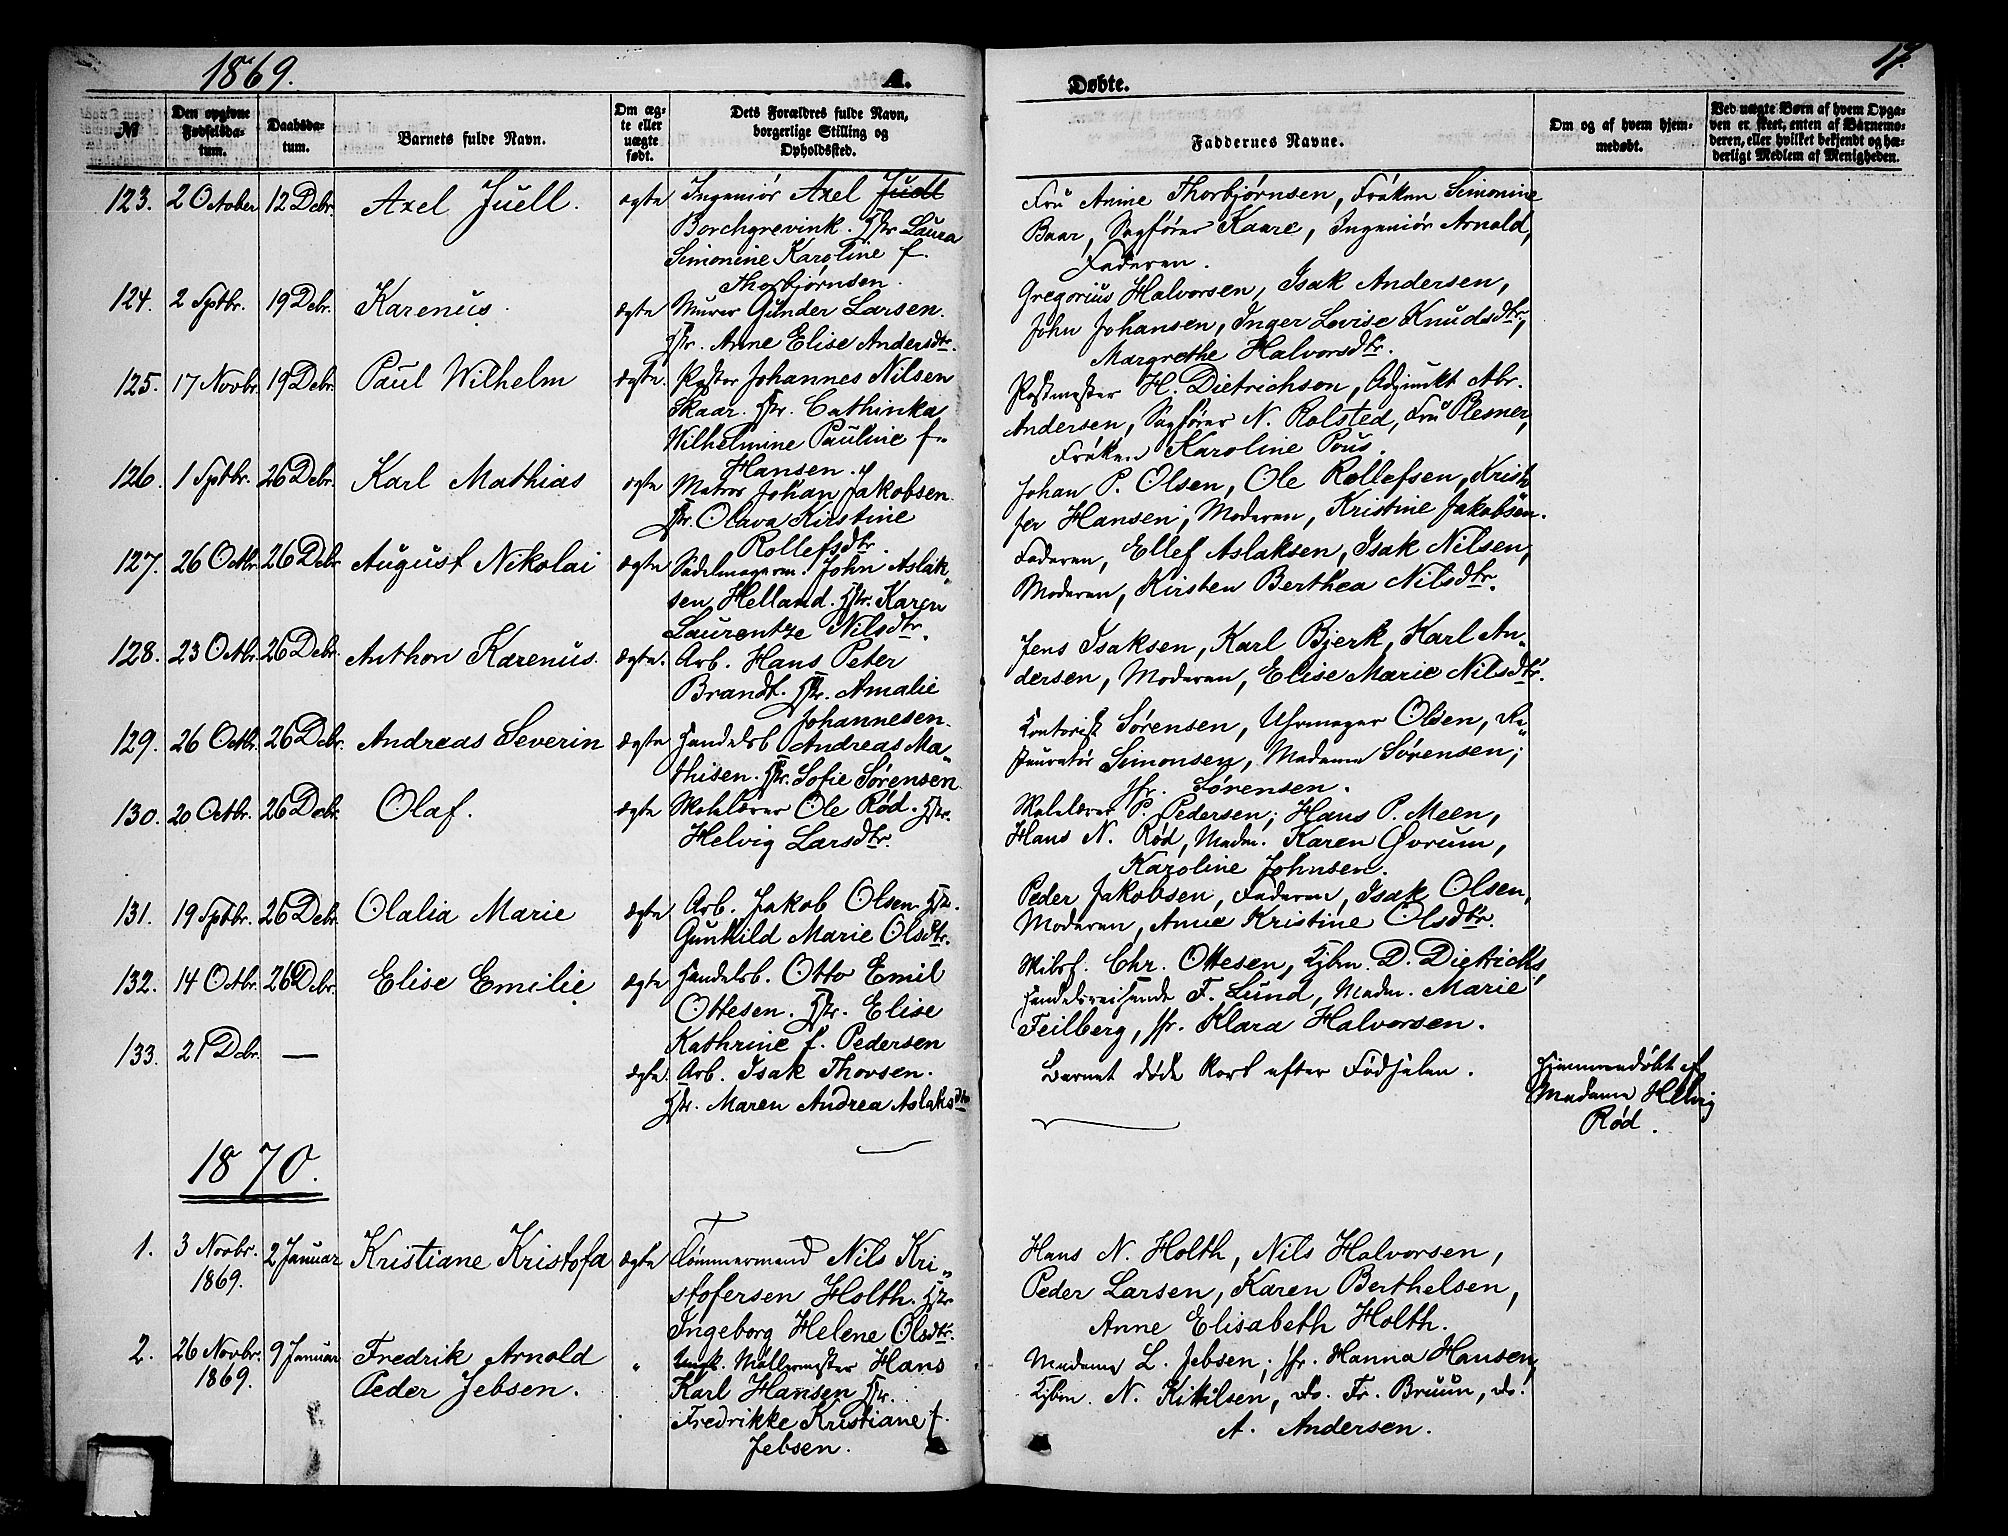 1869. A. Døbte. 17.
№ Den opgivne Fødselsdatum. Daabsdatum. Barnets fulde Navn. Om ægte eller uægte født. Dets Forældres fulde Navn, borgerlige Stilling og Opholdssted. Faddernes Navne. Om og af hvem hjemmedøbt. Ved uægte Børn af hvem Opgaven er skeet, enten af Barnemoderen, eller hvilket bekjendt og hæderligt Medlem af Menigheden.
123. 2 October 12 Dcbr. Axel Juell. ægte Ingeniør Axel Juell
Borchgrevink. Hstr. Laura
Simonine Karoline f.
Thorbjørnsen.
Fru Anine Thorbjørnsen, Frøken Simonine
Baar, Sagfører Kaare, Ingeniør Arnold,
Faderen.
124. 2 Sptbr. 19 Dcbr. Karenus. ægte Murer Gunder Larsen.
Hstr. Anne Elise Andersdtr.
Gregorius Halvorsen, Isak Andersen,
John Johansen, Inger Lovise Knudsdtr,
Margrethe Halvorsdtr.
125. 17 Novbr. 19 Dcbr. Paul Wilhelm ægte. Pastor Johannes Nilsen
Skaar. Hstr. Cathinka
Wilhelmine Pauline f.
Hansen.
Postmester H. Dietrichson, Adjunkt Abr.
Andersen, Sagfører N. Rolsted, Fru Plesner,
Frøken Karoline Pous.
126. 1 Sptbr. 26 Dcbr. Karl Mathias ægte Matros Johan Jakobsen.
Hstr. Olava Kirstine
Rollefsdtr.
Johan P. Olsen, Ole Rollefsen, Kristo
fer Hansen; Moderen, Kristine Jakobsen.
127. 26 Octbr. 26 Dcbr. August Nikolai ægte Sadelmagerm. John Aslak-
sen Helland. Hstr. Karen
Laurentze Nilsdtr.
Faderen, Ellef Aslaksen, Isak Nilsen,
Moderen, Kirsten Berthea Nilsdtr.
128. 23 Octbr. 26 Dcbr. Anthon Karenus. ægte. Arb. Hans Peter
Brandt. Hstr. Amalie
Johannesen.
Jens Isaksen, Karl Bjerk, Karl An-
dersen, Moderen, Elise Marie Nilsdtr.
129. 26 Octbr. 26 Dcbr. Andreas Severin ægte Handelsb. Andreas Ma-
thisen. Hstr. Sofie Sørensen
Kontorist Sørensen, Uhrmager Olsen, Re-
stauratør Simonsen, Madame Sørensen;
Jfr. Sørensen.
130. 20 Octbr. 26 Dcbr. Olaf. ægte Skolelærer Ole Rød. Hstr.
Helvig Larsdtr.
Skolelærer P. Pedersen; Hans P. Meen,
Hans N. Rød, Madm. Karen Øvrum,
Karoline Johnsen.
131. 19 Sptbr. 26 Dcbr. Olalia Marie ægte Arb. Jakob Olsen Hstr.
Gunhild Marie Olsdtr.
Peder Jakobsen, Faderen, Isak Olsen,
Moderen, Anne Kristine Olsdtr.
132. 14 Octbr. 26 Dcbr. Elise Emilie ægte Handelsb. Otto Emil
Ottesen. Hstr. Elise
Kathrine f. Pedersen
Skibsf. Chr. Ottesen, Kjbm. D. Dietrichs,
Handelsreisende F. Lund, Madm. Marie
Feilberg, Jfr. Klara Halvorsen.
133. 21 Dcbr. — ægte. Arb. Isak Thorsen.
Hstr. Maren Andrea Aslaksdtr
Barnet døde kort efter Fødselen. Hjemmedøbt af
Madame Helvig
Rød.
1870.
1. 3 Novbr. 1869. 2 Januar Kristiane Kristofa ægte Tømmermand Nils Kri-
stofersen Holth. Hstr
Ingeborg Helene Olsdtr.
Hans N. Holth, Nils Halvorsen,
Peder Larsen, Karen Berthelsen,
Anne Elisabeth Holth.
2. 26 Novbr. 1869. 9 Januar Fredrik Arnold
Peder Jebsen. " Møllermester Hans
Karl Hansen Hstr.
Fredrikke Kristiane f.
Jebsen.
Madame L. Jebsen; Jfr. Hanna Hansen,
Kjbm. N. Kittilsen, do. Fr. Bruun, do.
A. Andersen.